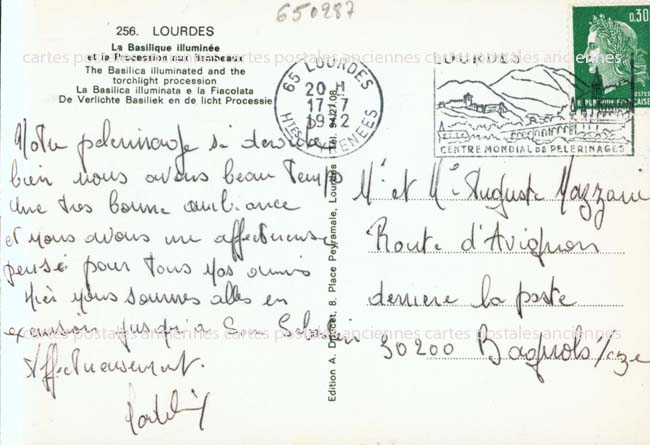 650287
256. LOURDES
La Basilique illuminée
et la Procession aux flambeaux
The Basilica illuminated and the
torchlight procession
La Basilica illuminata e la Fiacolata
De Verlichte Basiliek en de licht Processie
65 LOURDES
20 H
17-7
1972
HTES PYRENEES
LOURDES
CENTRE MONDIAL DE PELERINAGES
0,30
POSTES
REPUBLIQUE FRANÇAISE
cartes postales anciennes cartes postales anciennes cartes postales anciennes
Notre pelerinage si deroule
bien nous avons beau temps
une tres bonne ambiance
et nous avons un affectueuse
pensé pour tous nos amis
hier nous sommes alles en
excursion jusqu'a San Sebastien
Affectueusement.
Edition A. Doucet, 8, Place Peyramale, Lourdes - Tél. 94.27.08
Mr et Me Auguste Mazzani
Route d'Avignon
derriere la poste
30200 Bagnols s/Cèze
cartes postales anciennes cartes postales anciennes cartes postales anciennes